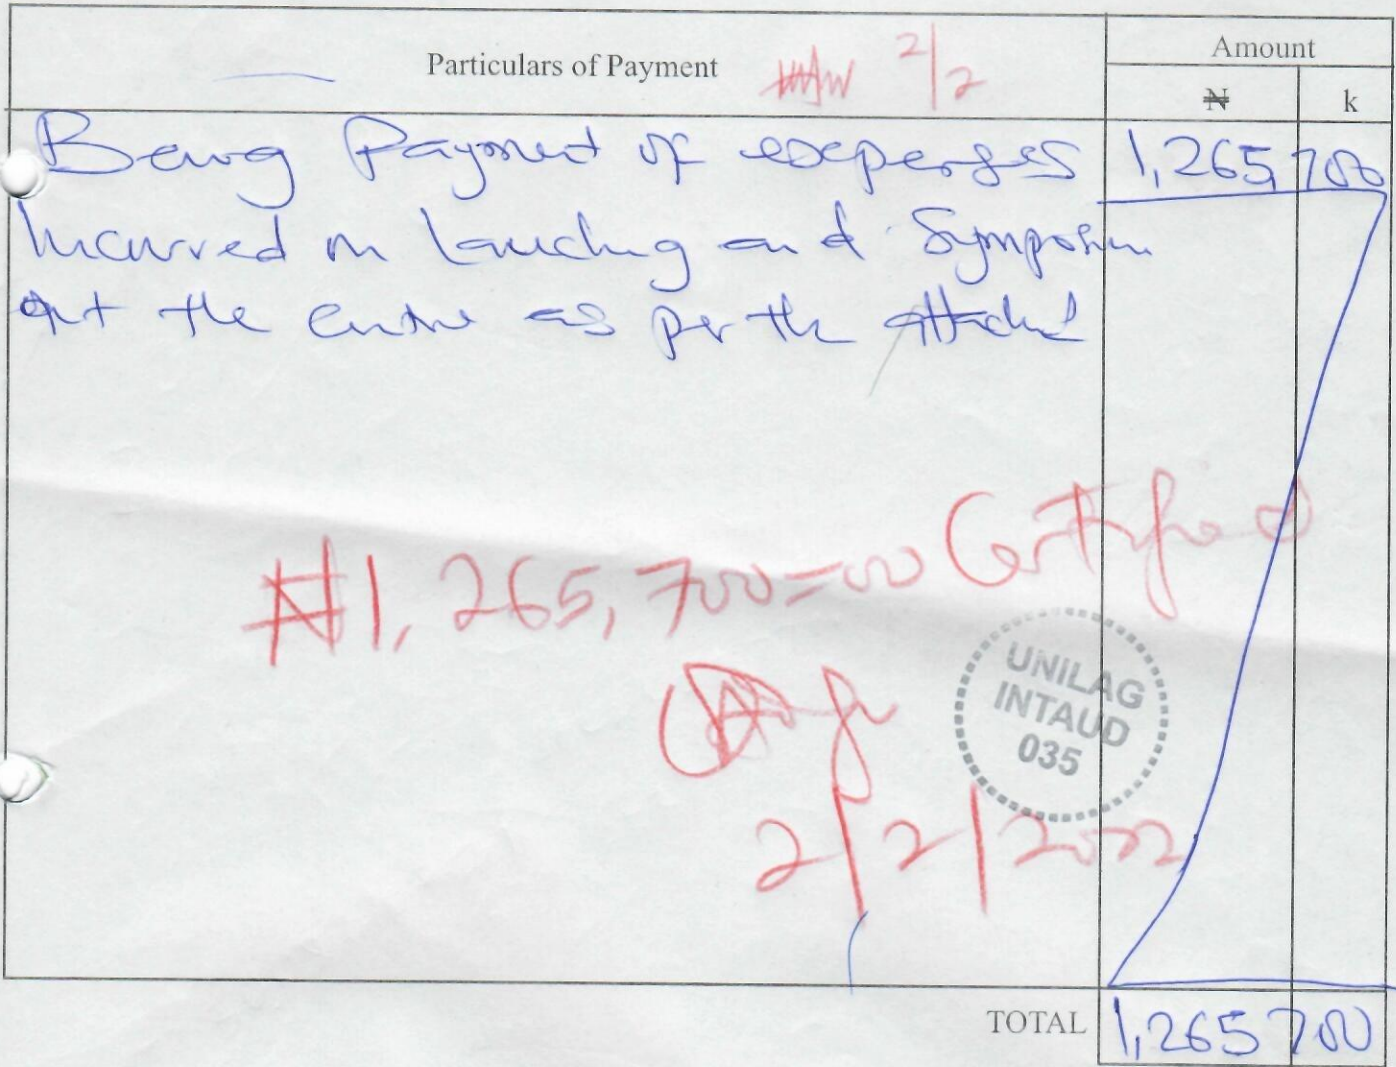 Particulars of Payment 2/2
Amount
₦ k
Being Payment of expenses 1,265,700
Incurred on Lauching and Symposium
at the centre as per the attached
₦1,265,700=00 Certified
UNILAG
INTAUD
035
2/2/2022
TOTAL 1,265 700